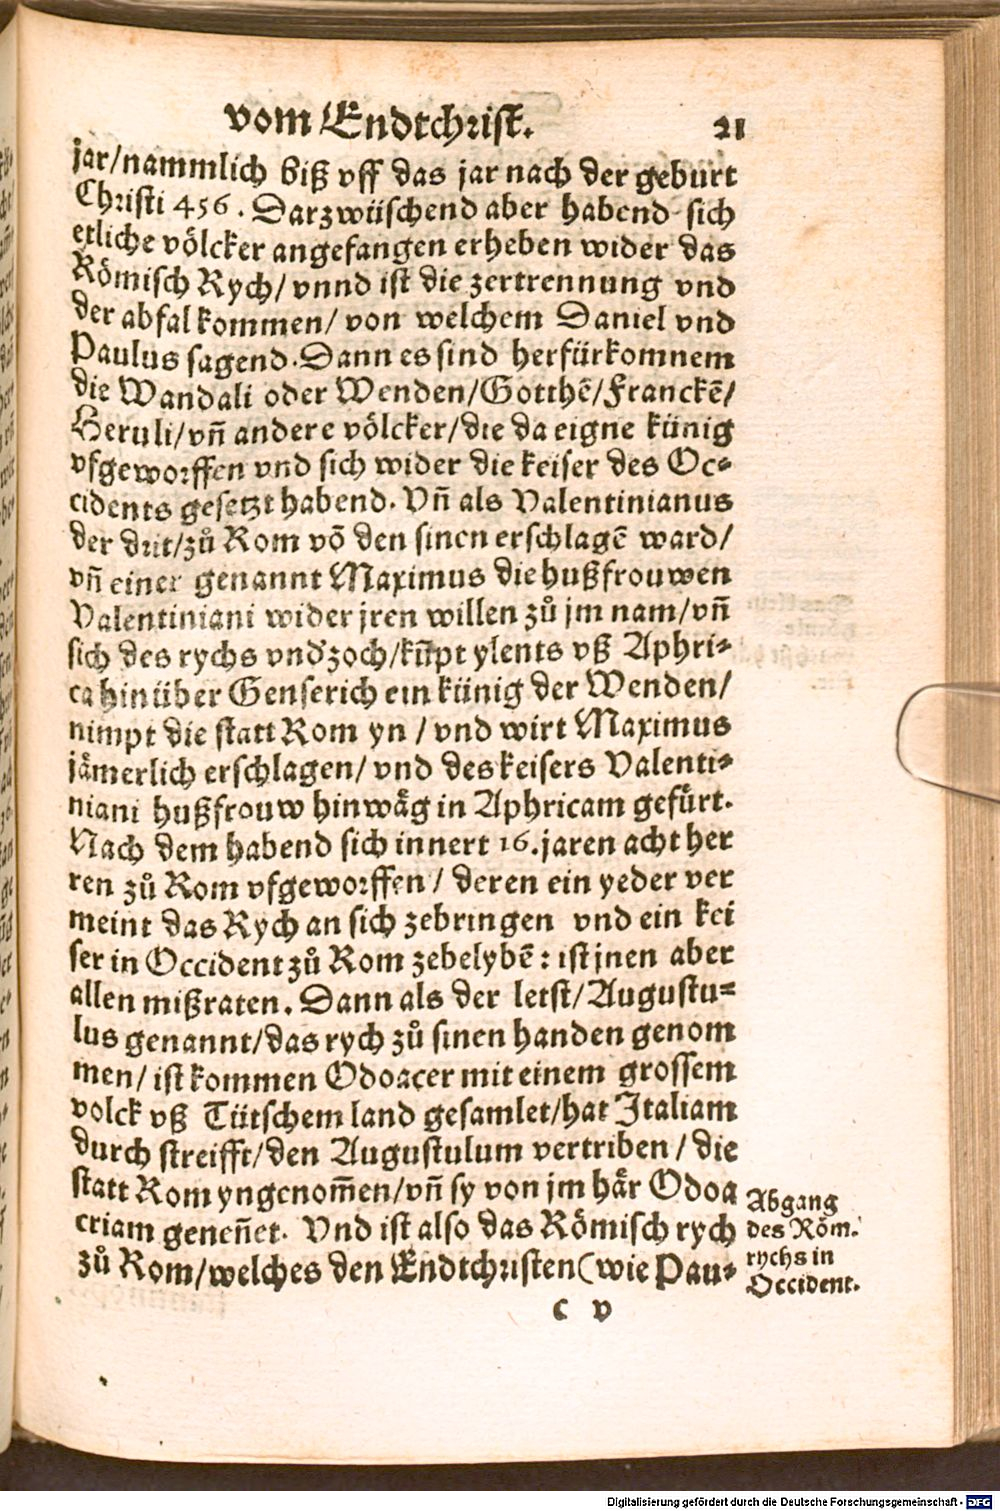 vom Endtchrist.
21
jar/nammlich biß vff das jar nach der geburt
Christi 456. Darzwüschend aber habend sich
etliche völcker angefangen erheben wider das
Römisch Rych/ vnnd ist die zertrennung vnd
der abfal kommen/ von welchem Daniel vnd
Paulus sagend. Dann es sind herfürkomnem
die Wandali oder Wenden/Gotthē/Franckē/
Heruli/vñ andere völcker/die da eigne künig
vfgeworffen vnd sich wider die keiser des Oc-
cidents gesetzt habend. Vñ als Valentinianus
der drit/zů Rom vō den sinen erschlagē ward/
vñ einer genannt Maximus die hußfrouwen
Valentiniani wider jren willen zů jm nam/vñ
sich des rychs vnd'zoch/kūpt ylents vß Aphri-
ca hinüber Genserich ein künig der Wenden/
nimpt die statt Rom yn / vnd wirt Maximus
jämerlich erschlagen/ vnd des keisers Valenti-
niani hußfrouw hinwäg in Aphricam gefürt.
Nach dem habend sich innert 16. jaren acht her
ren zů Rom vfgeworffen / deren ein yeder ver
meint das Rych an sich zebringen vnd ein kei
ser in Occident zů Rom zebelybē : ist jnen aber
allen mißraten. Dann als der letst/Augustu-
lus genannt/das rych zů sinen handen genom
men/ ist kommen Odoacer mit einem grossem
volck vß Tütschem land gesamlet/hat Italiam
durch streifft/den Augustulum vertriben / die
statt Rom yngenom̄en/vñ sy von jm här Odoa
criam geneñet. Vnd ist also das Römisch rych
zů Rom/welches den Endtchristen (wie Pau-
Abgang
des Röm.
rychs in
Occident.
c v
Digitalisierung gefördert durch die Deutsche Forschungsgemeinschaft - DFG